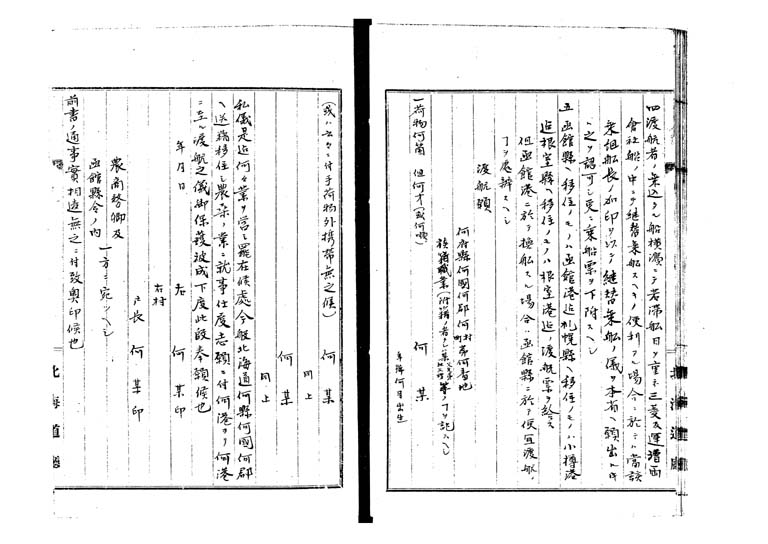 四渡航者ノ乗込タル船横濱ニテ若滞船日ヲ重ネ三菱及運漕両
會社船ノ中ニテ継替乗船スヘキノ便利アル場合ニ於テハ當該
乗組船長ノ加印ヲ以テ継替乗船ノ儀ヲ本省ヘ願出ルトキ
之ヲ認可シ更ニ乗船票ヲ下附スヘシ
五函館縣ヘ移住ノモノハ函館港迄札幌縣ヘ移住ノモノハ小樽港
迄根室縣ヘ移住ノモノハ根室港迄ノ渡航票ヲ給ス
但函館港ニ於テ換船スル場合ハ函館縣ニ於テ便宜渡航ノ
丁ヲ處辨スヘシ
渡航願
何府縣何國何郡何町村第何番地
族籍職業
何某
年齢何年何月出生
一荷物何箇 但何才(或何噸)
(或ハ女々々付手荷物外携帯無之候)
何某
同上
何某
同上
私儀是迄何々業ヲ営ミ罷在候處今般北海道何縣何國何郡
ヘ送籍移住シ農桑ノ業ニ就事仕度志願ニ付何港ヨリ何港
ニ至ル渡航之儀御保護被成下度此段奉願候也
年月日
右
何某印
右村
戸長 何某印
農商務卿及
函館縣令ノ内
一方ニ宛ツヘシ
前書ノ通事實相違無之ニ付致奥印候也
北海道廳